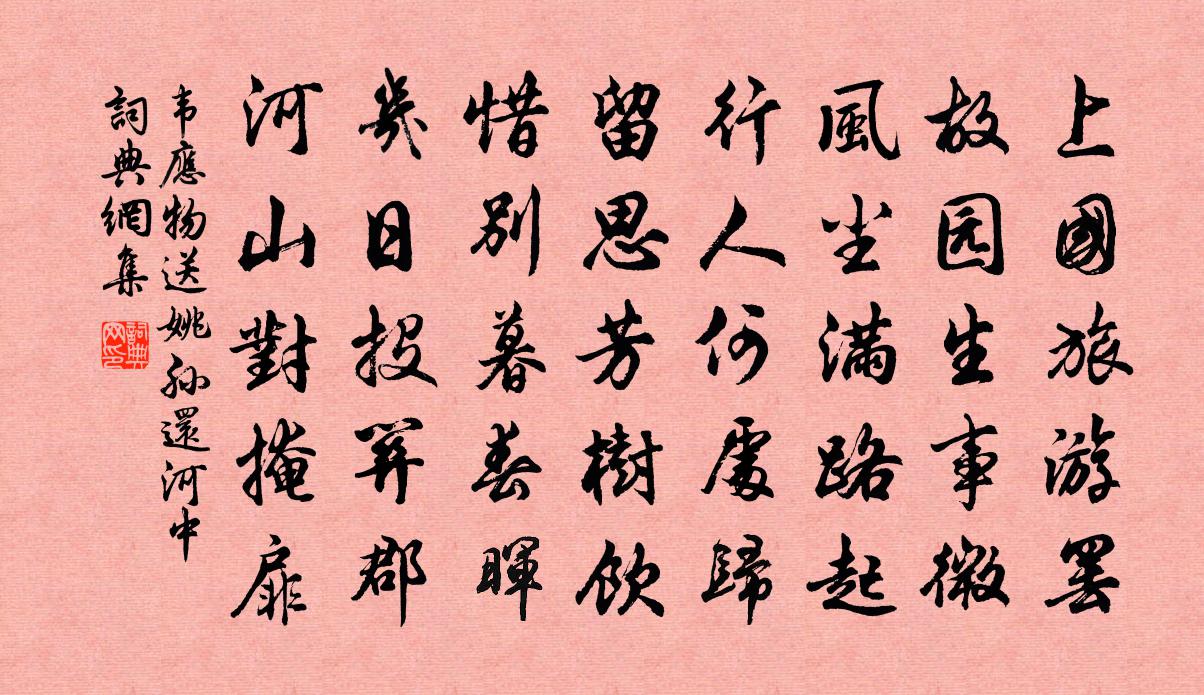 上國旅游罢
故园生事微
風尘滿路起
行人何處歸
留思芳樹飲
惜别暮春暉
幾日投關郡
河山對掩扉
韦應物送姚孫還河中
詞典網集
詞典网印